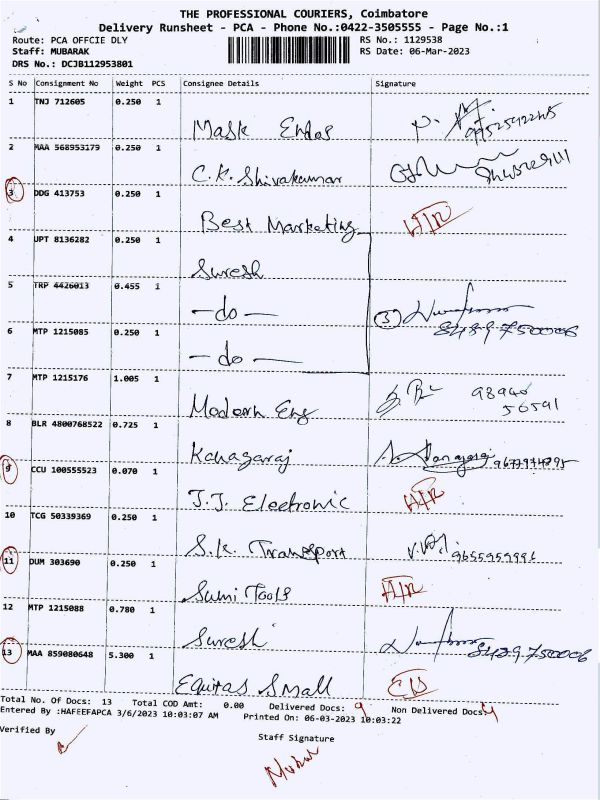 THE PROFESSIONAL COURIERS, Coimbatore
Delivery Runsheet - PCA - Phone No.:0422-3505555 - Page No.:1
Route: PCA OFFCIE DLY RS No.: 1129538
Staff: MUBARAK RS Date: 06-Mar-2023
DRS No.: DCJB112953801
S No Consignment No Weight PCS Consignee Details Signature
1 TNJ 712605 0.250 1
Mask
2 MAA 568953179 0.250 1
C.K. Shivakumar
3 DDG 413753 0.250 1
Best Marketing
4 UPT 8136282 0.250 1
Suresh
5 TRP 4426013 0.455 1
-do- 3
8489750006
6 MTP 1215085 0.250 1
-do-
7 MTP 1215176 1.005 1
Modern Eng 98940
56591
8 BLR 4800768522 0.725 1
Kanagaraj
9 CCU 100555523 0.070 1
J.J. Electronic
10 TCG 50339369 0.250 1
S.K. Transport
11 DUM 303690 0.250 1
Sumi Tools
12 MTP 1215088 0.780 1
Suresh 8489750006
13 MAA 859080648 5.300 1
Equitas Small
Total No. Of Docs: 13 Total COD Amt: 0.00 Delivered Docs: 9 Non Delivered Docs: 4
Entered By :HAFEEFAPCA 3/6/2023 10:03:07 AM Printed On: 06-03-2023 10:03:22
Verified By
Staff Signature